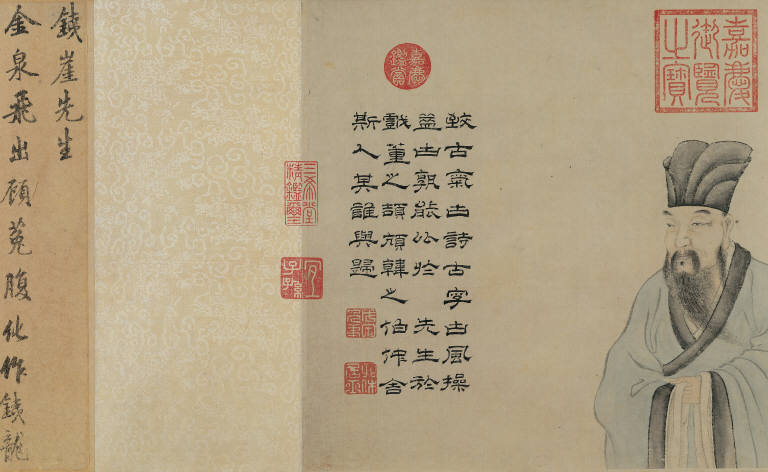 嘉慶御覽之寶
致古氣古詩古字古風操
益古孰能公於 先生於
戲董之頡頏韓之伯仲舍
斯人其誰與歸
嘉慶鑑賞
三希堂精鑑璽
宜子孫
銕崖先生
金泉飛出顧菟腹化作銕龍